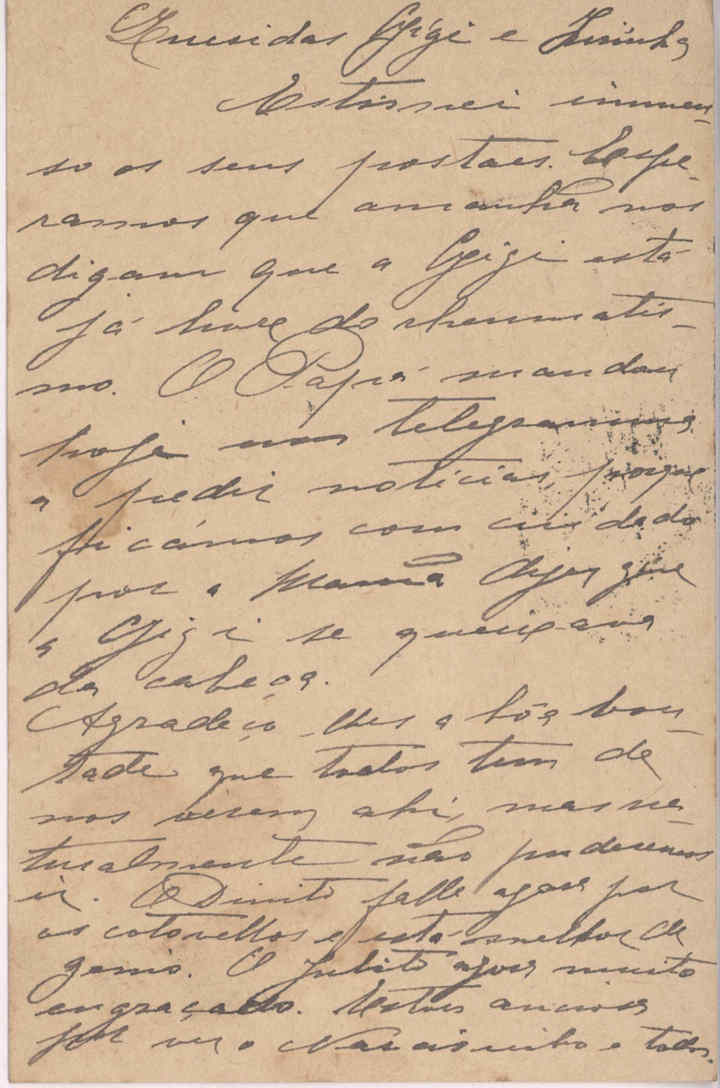 Queridas Gigi e Zizinha
Estimei immen-
so os seus postaes. Espe-
ramos que amanhã nos
digam que a Gigi está
já livre do rheumatis-
mo. O Papá mandou
hoje um telegramma
a pedir noticias, porque
ficámos com cuidado
por a Mamã dizer que
a Gigi se queixava
da cabeça.
Agradeço-lhes a bôa von-
tade que todos tem de
nos verem ahi, mas na-
turalmente não poderemos
ir. O falla agora por
os cotovellos e está melhor de
genio. O Julito agora muito
engraçado. Estou anciosa
por ver o Narcisinho e todos.